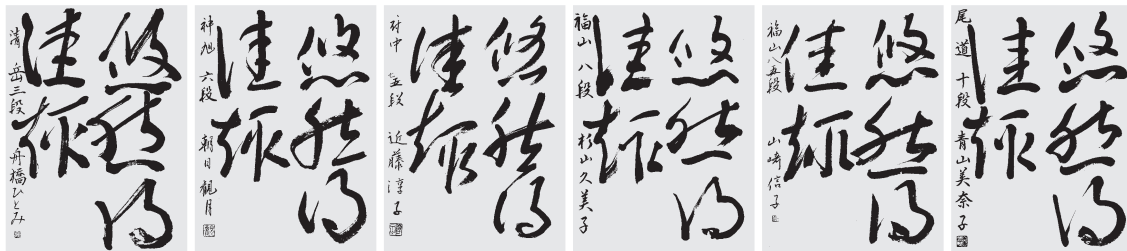 悠然得
佳趣
尾道 十段 青山美奈子
悠然得
佳趣
福山 八五段 山崎信子
悠然得
佳趣
福山 八段 杉山久美子
悠然得
佳趣
府中 七五段 近藤淳子
悠然得
佳趣
神旭 六段 朝日観月
悠然得
佳趣
清岳 三段 舟橋ひとみ